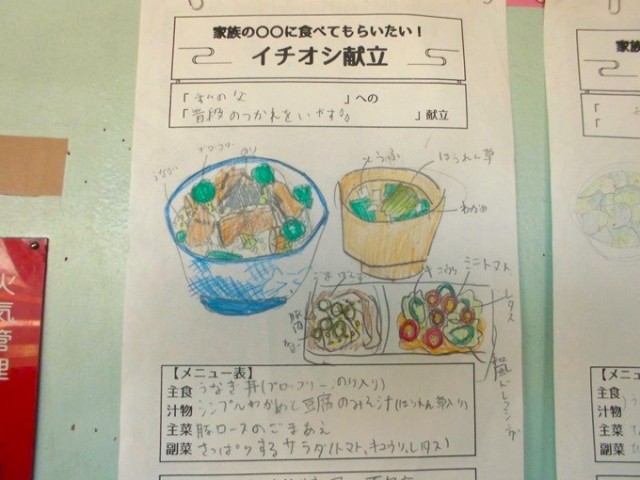 家族の〇〇に食べてもらいたい！
イチオシ献立
「 」への
「普段のつかれをいやす 」献立
うなぎ
ブロッコリー
のり
とうふ
ほうれん草
わかめ
ごま
キュウリ
ミニトマト
レタス
豚肉
【メニュー表】
主食 うなぎ丼(ブロッコリー、のり入り)
汁物 シンプルわかめと豆腐のみそ汁(ほうれん草入り)
主菜 豚ロースのごまあえ
副菜 さっぱりするサラダ(トマト、キュウリ、レタス)
火気管理
家族
「
「
【メニ
主食
汁物
主菜
副菜